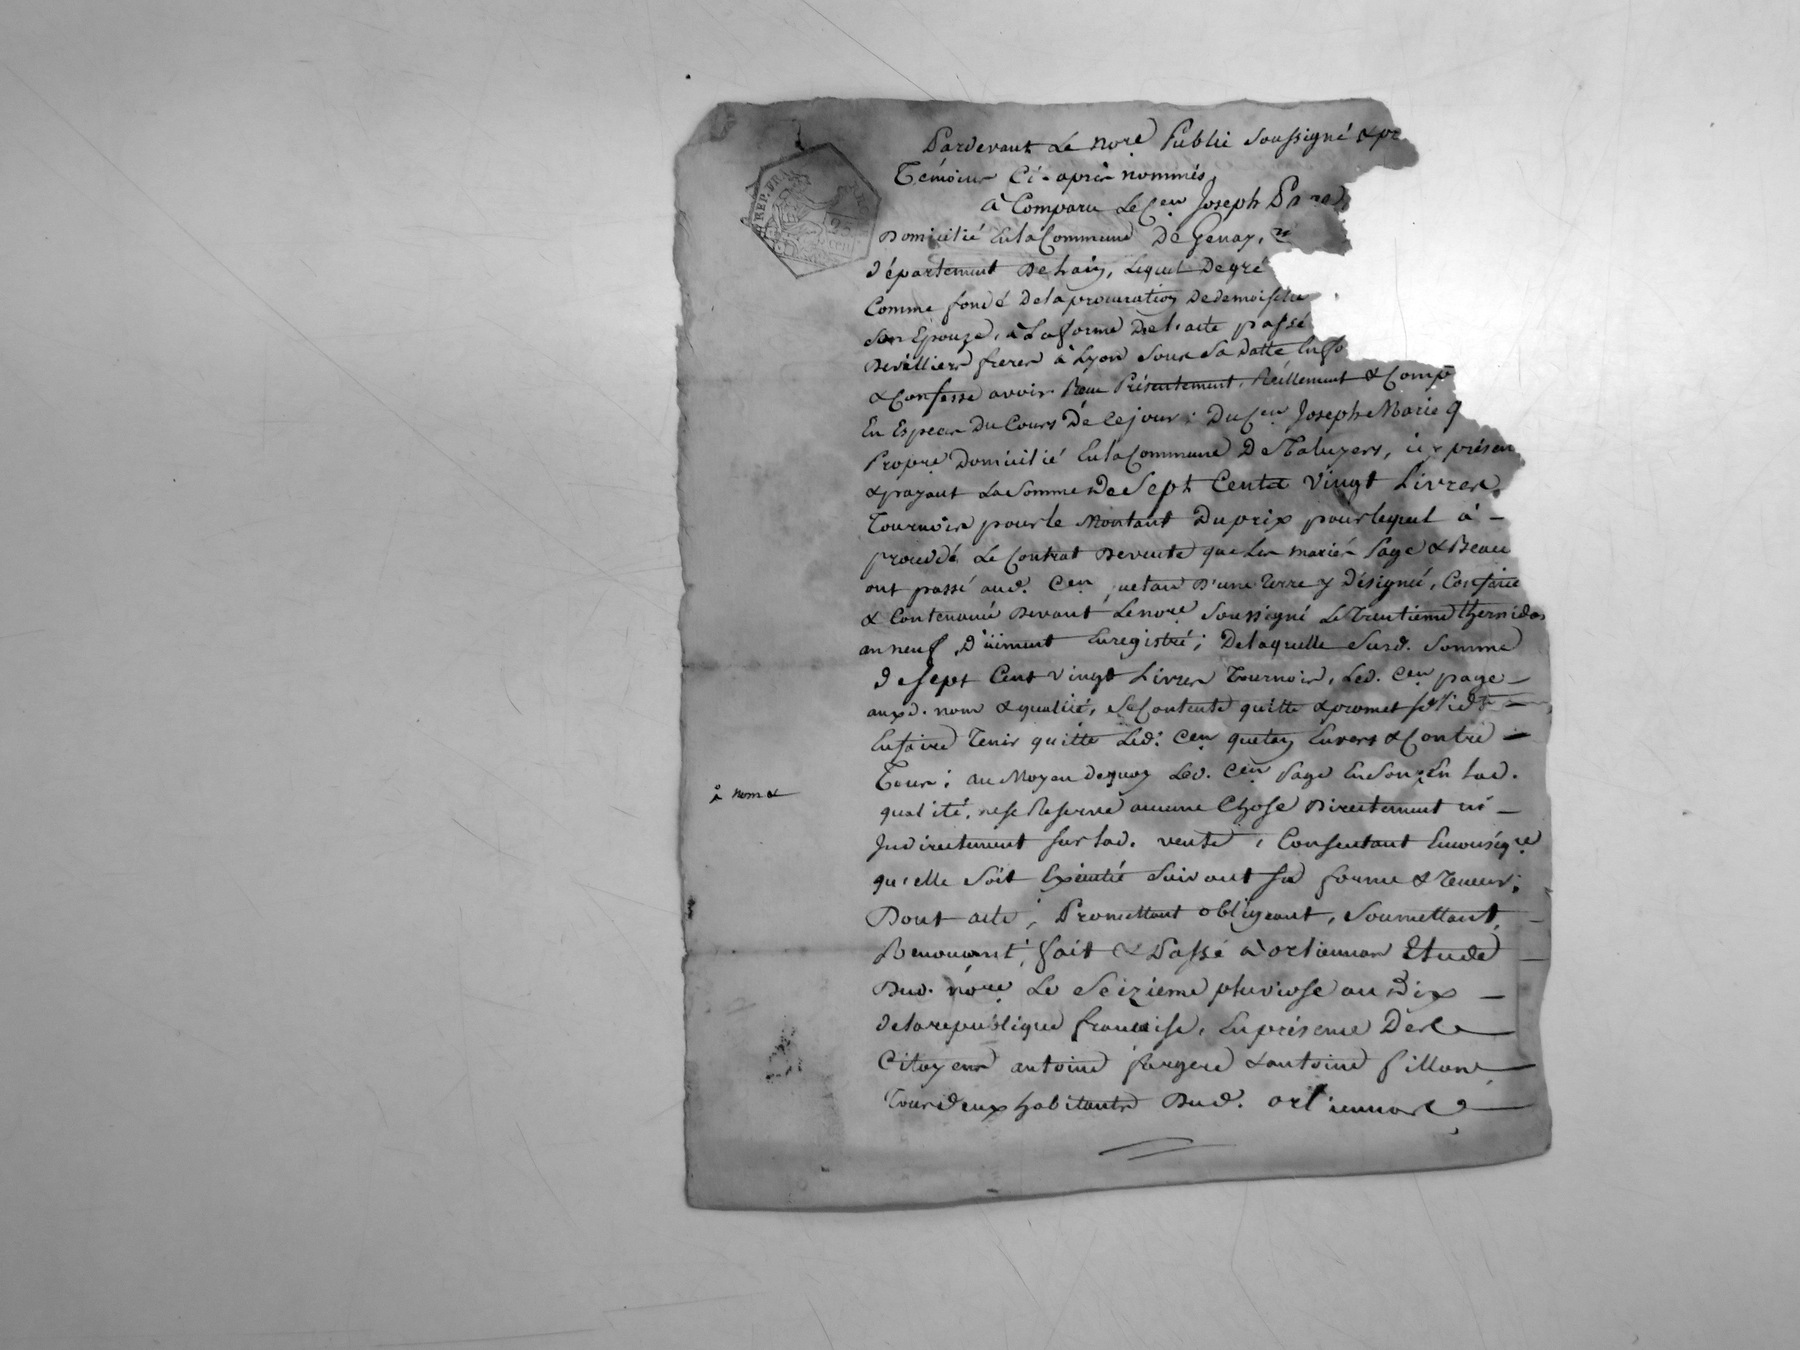 REP. FRA
Pardevant Le no.re Public Soussigné & pr
Témoins Ci-après nommés,
à Comparu Le C.en Joseph
Domicilié En la Commune De Genay,
département De Lain, Lequel De gré
Comme fondé De la procuration De demoiselle
Son Epouze, à La forme De l'acte passé
frères à Lyon Sous Sa datte,
& Confesse avoir Reçu Présentement, Réellement & Comp
En Espèces Du Cours De Ce jour; Du C.en Joseph Marie q
Prop.re Domicilié En la Commune De Taluyers, icy présen
& payant La Somme De Sept Cents Vingt Livres
Tournois pour le Montant Du prix pour lequel à -
procédé Le Contrat De vente que Les mariés Page &
ont passé aud. C.en quetan D'une Terre y Désignée, Confinée
& Contenuée Devant Le no.re Soussigné Le Trentieme thermidor
an neuf, Düiment Enregistré; De laquelle Susd. Somme
De Sept Cent vingt Livres Tournois, Led. C.en page -
auxd. nom & qualité, Se Contente quitte & promet -
En faire Tenir quitte Led. C.en quetan Envers & Contre -
Tous; au Moyen de quoy Led. C.en Page En Son En lad.
° nom &
qualité, ne se Reserve aucune Chose Directement ni -
Indirectement Sur lad. vente, Consentant
qu'elle Soit Exécutée Suivant Sa forme & Teneur;
Dont acte; Promettant obligeant, Soumettant, -
Renonçant; fait & Passé à orliennas Etude -
Dud. no.re Le Seizieme pluviose an Dix -
de la république françoise, En présence Des
Citoyens antoine fargere & antoine fillon,
Tous deux habitants Dud. orliennas